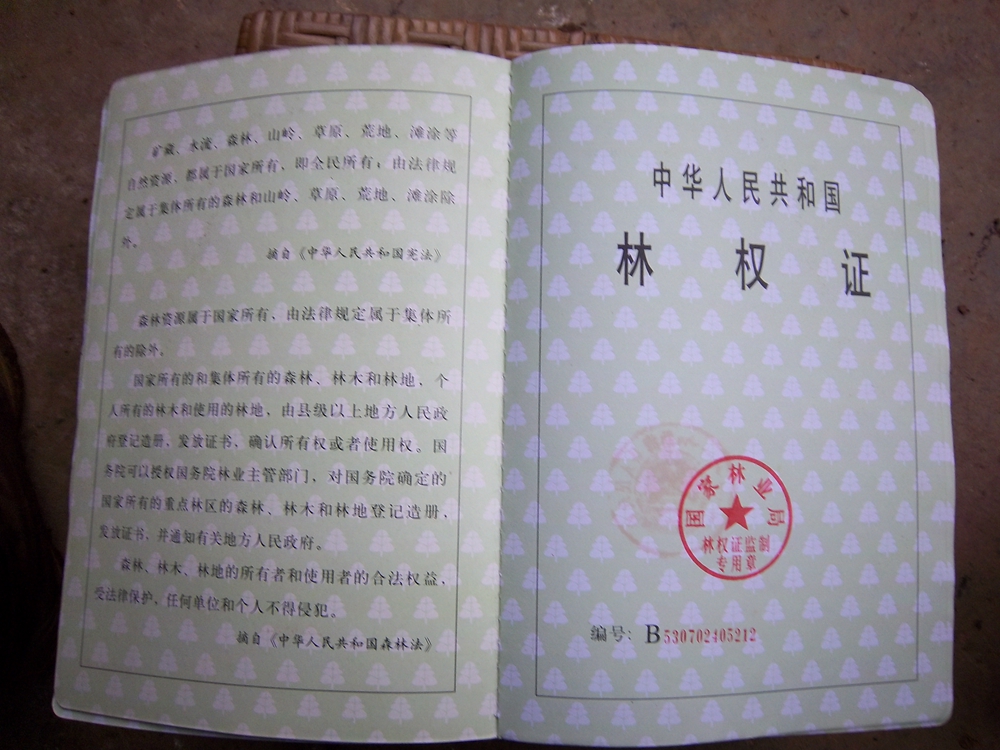 矿藏、水流、森林、山岭、草原、荒地、滩涂等
自然资源,都属于国家所有,即全民所有;由法律规
定属于集体所有的森林和山岭、草原、荒地、滩涂除
外。
摘自《中华人民共和国宪法》
森林资源属于国家所有,由法律规定属于集体所
有的除外。
国家所有的和集体所有的森林、林木和林地,个
人所有的林木和使用的林地,由县级以上地方人民政
府登记造册,发放证书,确认所有权或者使用权。国
务院可以授权国务院林业主管部门,对国务院确定的
国家所有的重点林区的森林、林木和林地登记造册,
发放证书,并通知有关地方人民政府。
森林、林木、林地的所有者和使用者的合法权益,
受法律保护,任何单位和个人不得侵犯。
摘自《中华人民共和国森林法》
中华人民共和国
林权证
国家林业局
林权证监制
专用章
编号:B530702405212